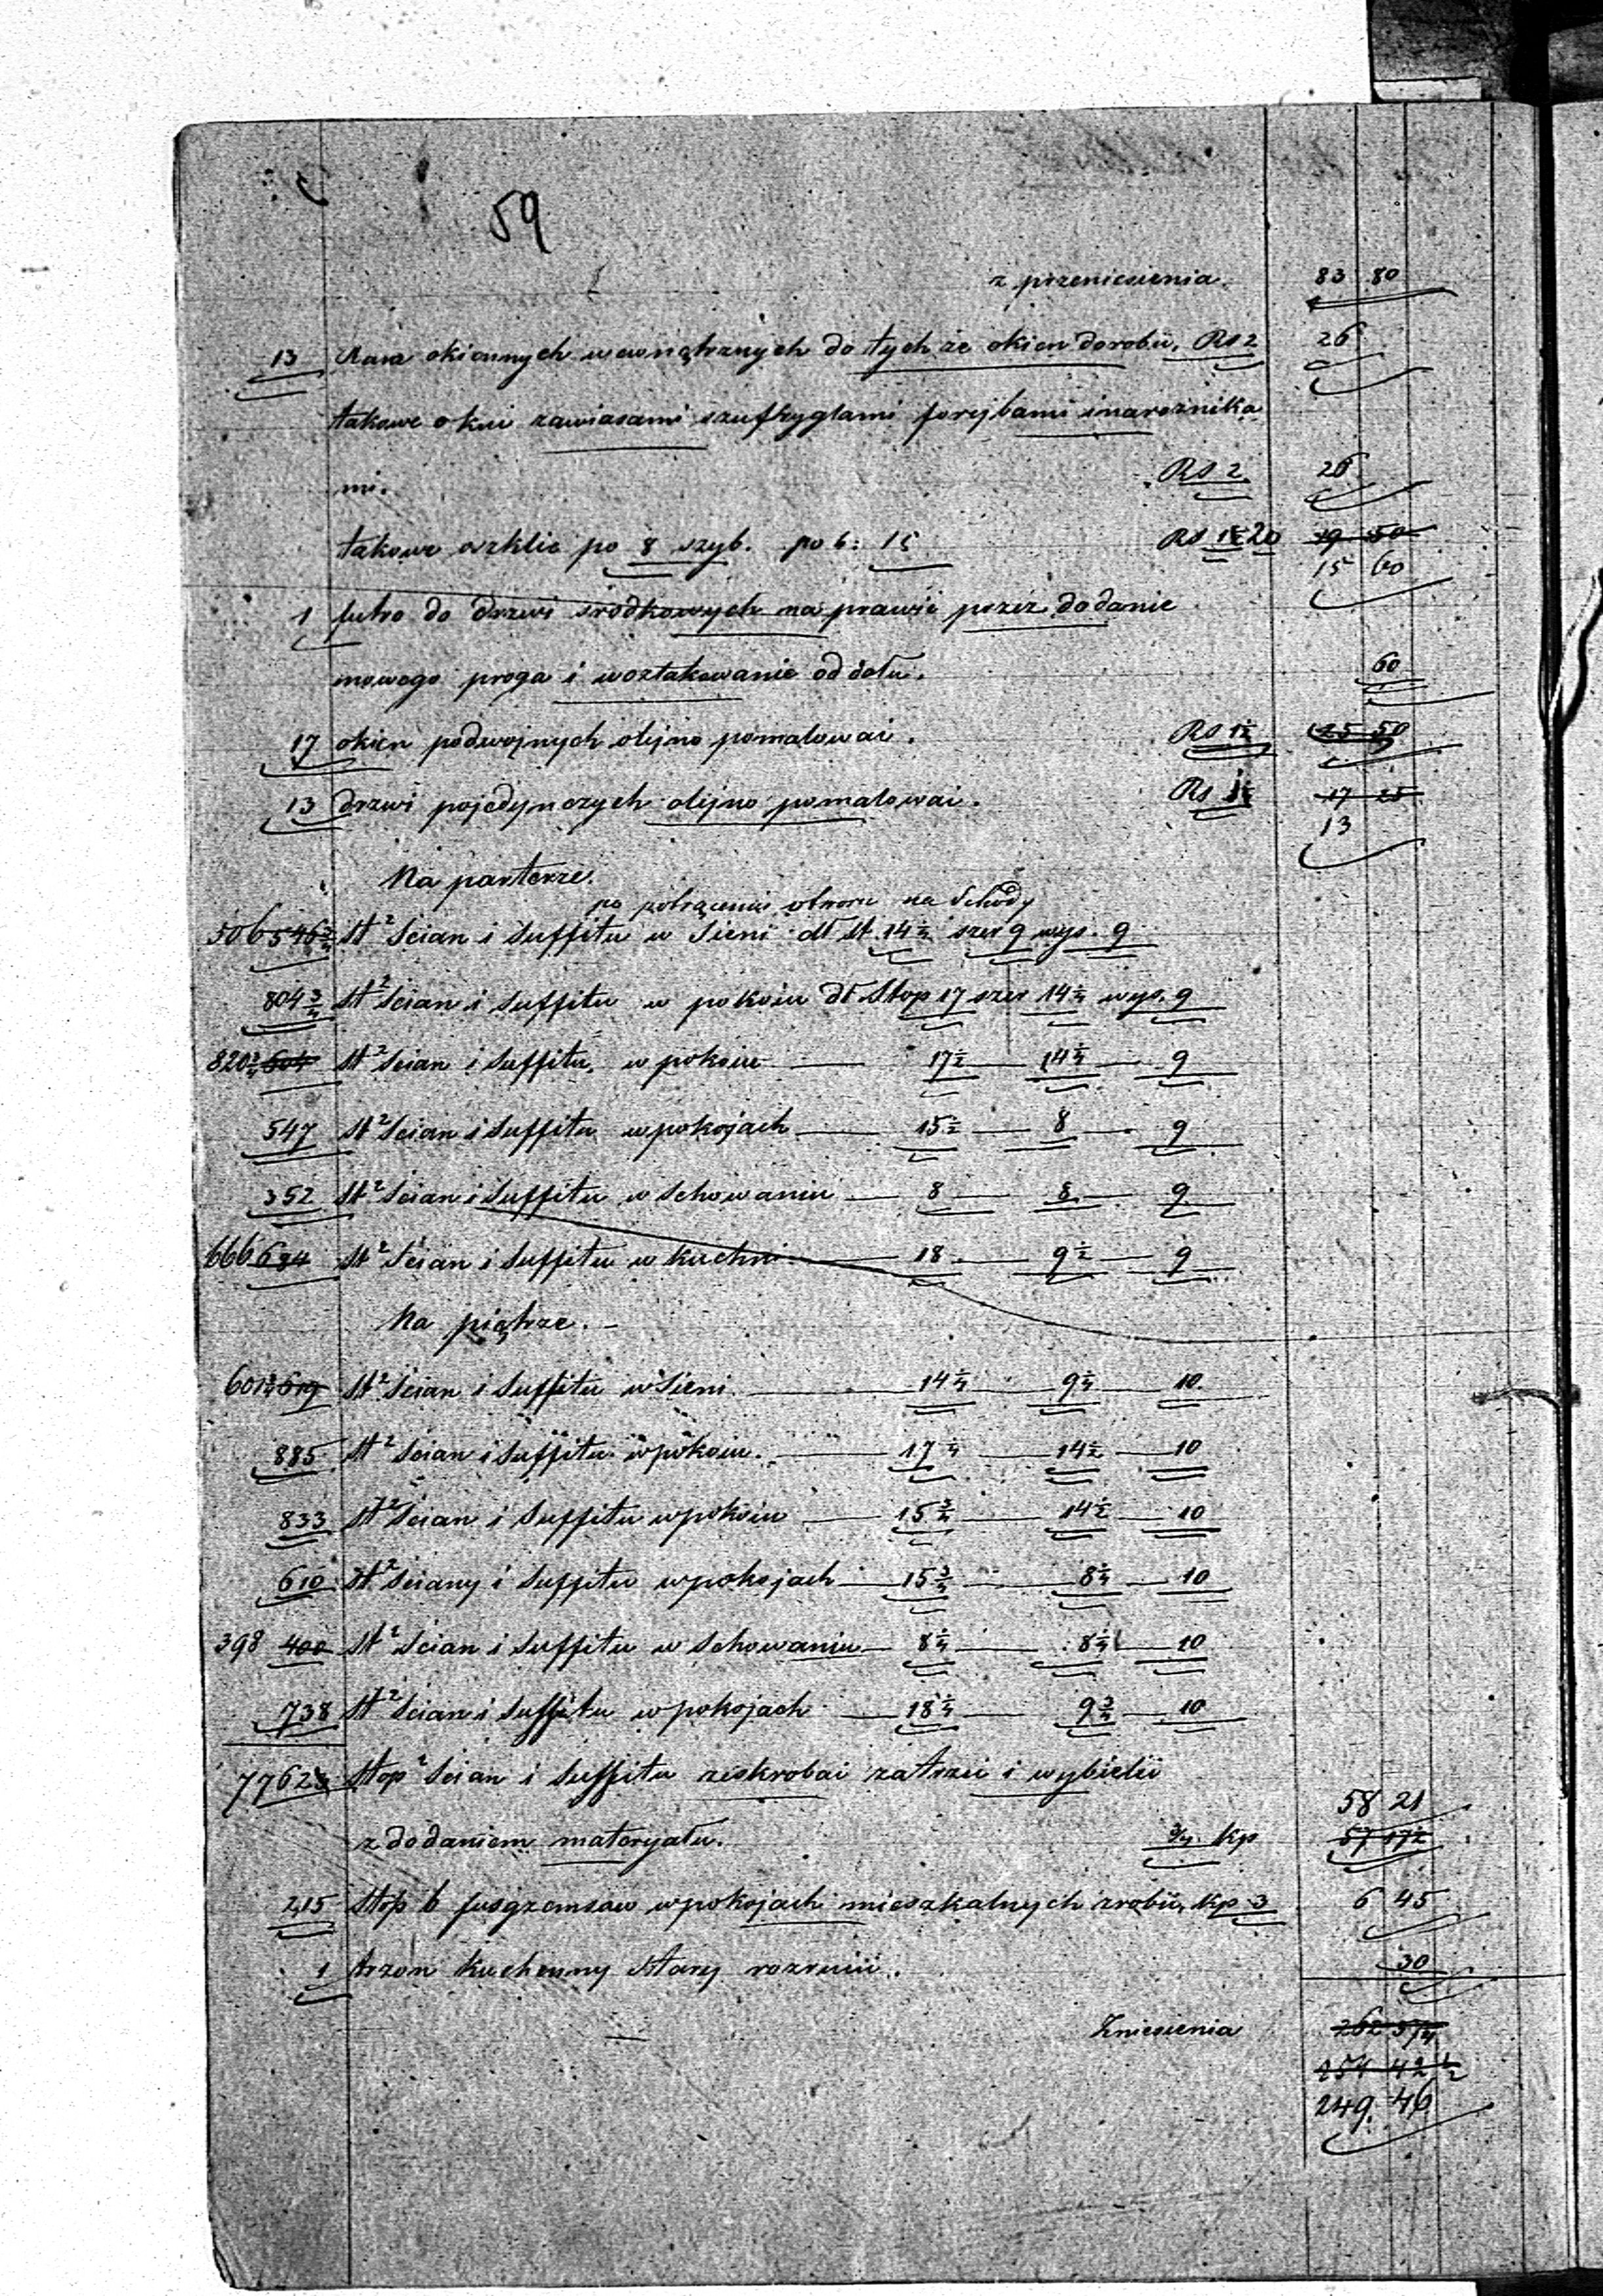 59
z przeniesienia. 83 80
13 Ram okiennych wewnątrznych do tych że okien dorobić. Rs 2 26
takowe okuć zawiasami szufryglami forejbami i narożnika
mi. Rs 2. 26
takowe oszklić po 8 szyb. po k: 15 Rs 1 20 19 50
15 60
1 futro do drzwi środkowych na prawić przez dodanie
nowego proga i wsztakowanie od dołu. 60
17 okien podwójnych olejno pomalować. Rs 1½ 25 50
13 drzwi pojedynczych olejno pomalować. Rs 1 17 25
13
Na parterze.
po potrąceniu otworu na Schody
506 546¾ st² Ścian i Suffitu w Sieni dł st 14½ szer 9 wys. 9
804¾ st² Ścian i suffitu w pokoiu dł Stop 17 szer 14¼ wys. 9
820¾ 804 st² ścian i suffitu w pokoiu 17½ 14¼ 9
547 st² ścian i suffitu w pokojach 15½ 8 9
352 st² ścian i suffitu w schowaniu 8 8 9
666 684 st² Ścian i suffitu w kuchni 18 9½ 9
Na piątrze.
601¾ 619 st² ścian i suffitu w sieni 14¼ 9¼ 10.
885 st² ścian i suffitu w pokoiu. 17¼ 14½ 10
833 st² ścian i suffitu w pokoiu 15¾ 14½ 10
610 st² ściany i suffitu w pokojach 15¾ 8¼ 10
398 400 st² ścian i suffitu w schowaniu 8¼ 8¼ 10
738 st² ścian i suffitu w pokojach 18¼ 9¾ 10
7762 Stop² ścian i suffitu zeskrobać zatrzeć i wybielić
58 21
z dodaniem materyału. ¾ Kp 57 17½
215 Stop b fusgzemsów w pokojach mieszkalnych zrobić, kp 3 6 45
1 trzon kuchenny stary rozrucić. 30
Zniesienia 262
254 42½
249. 46